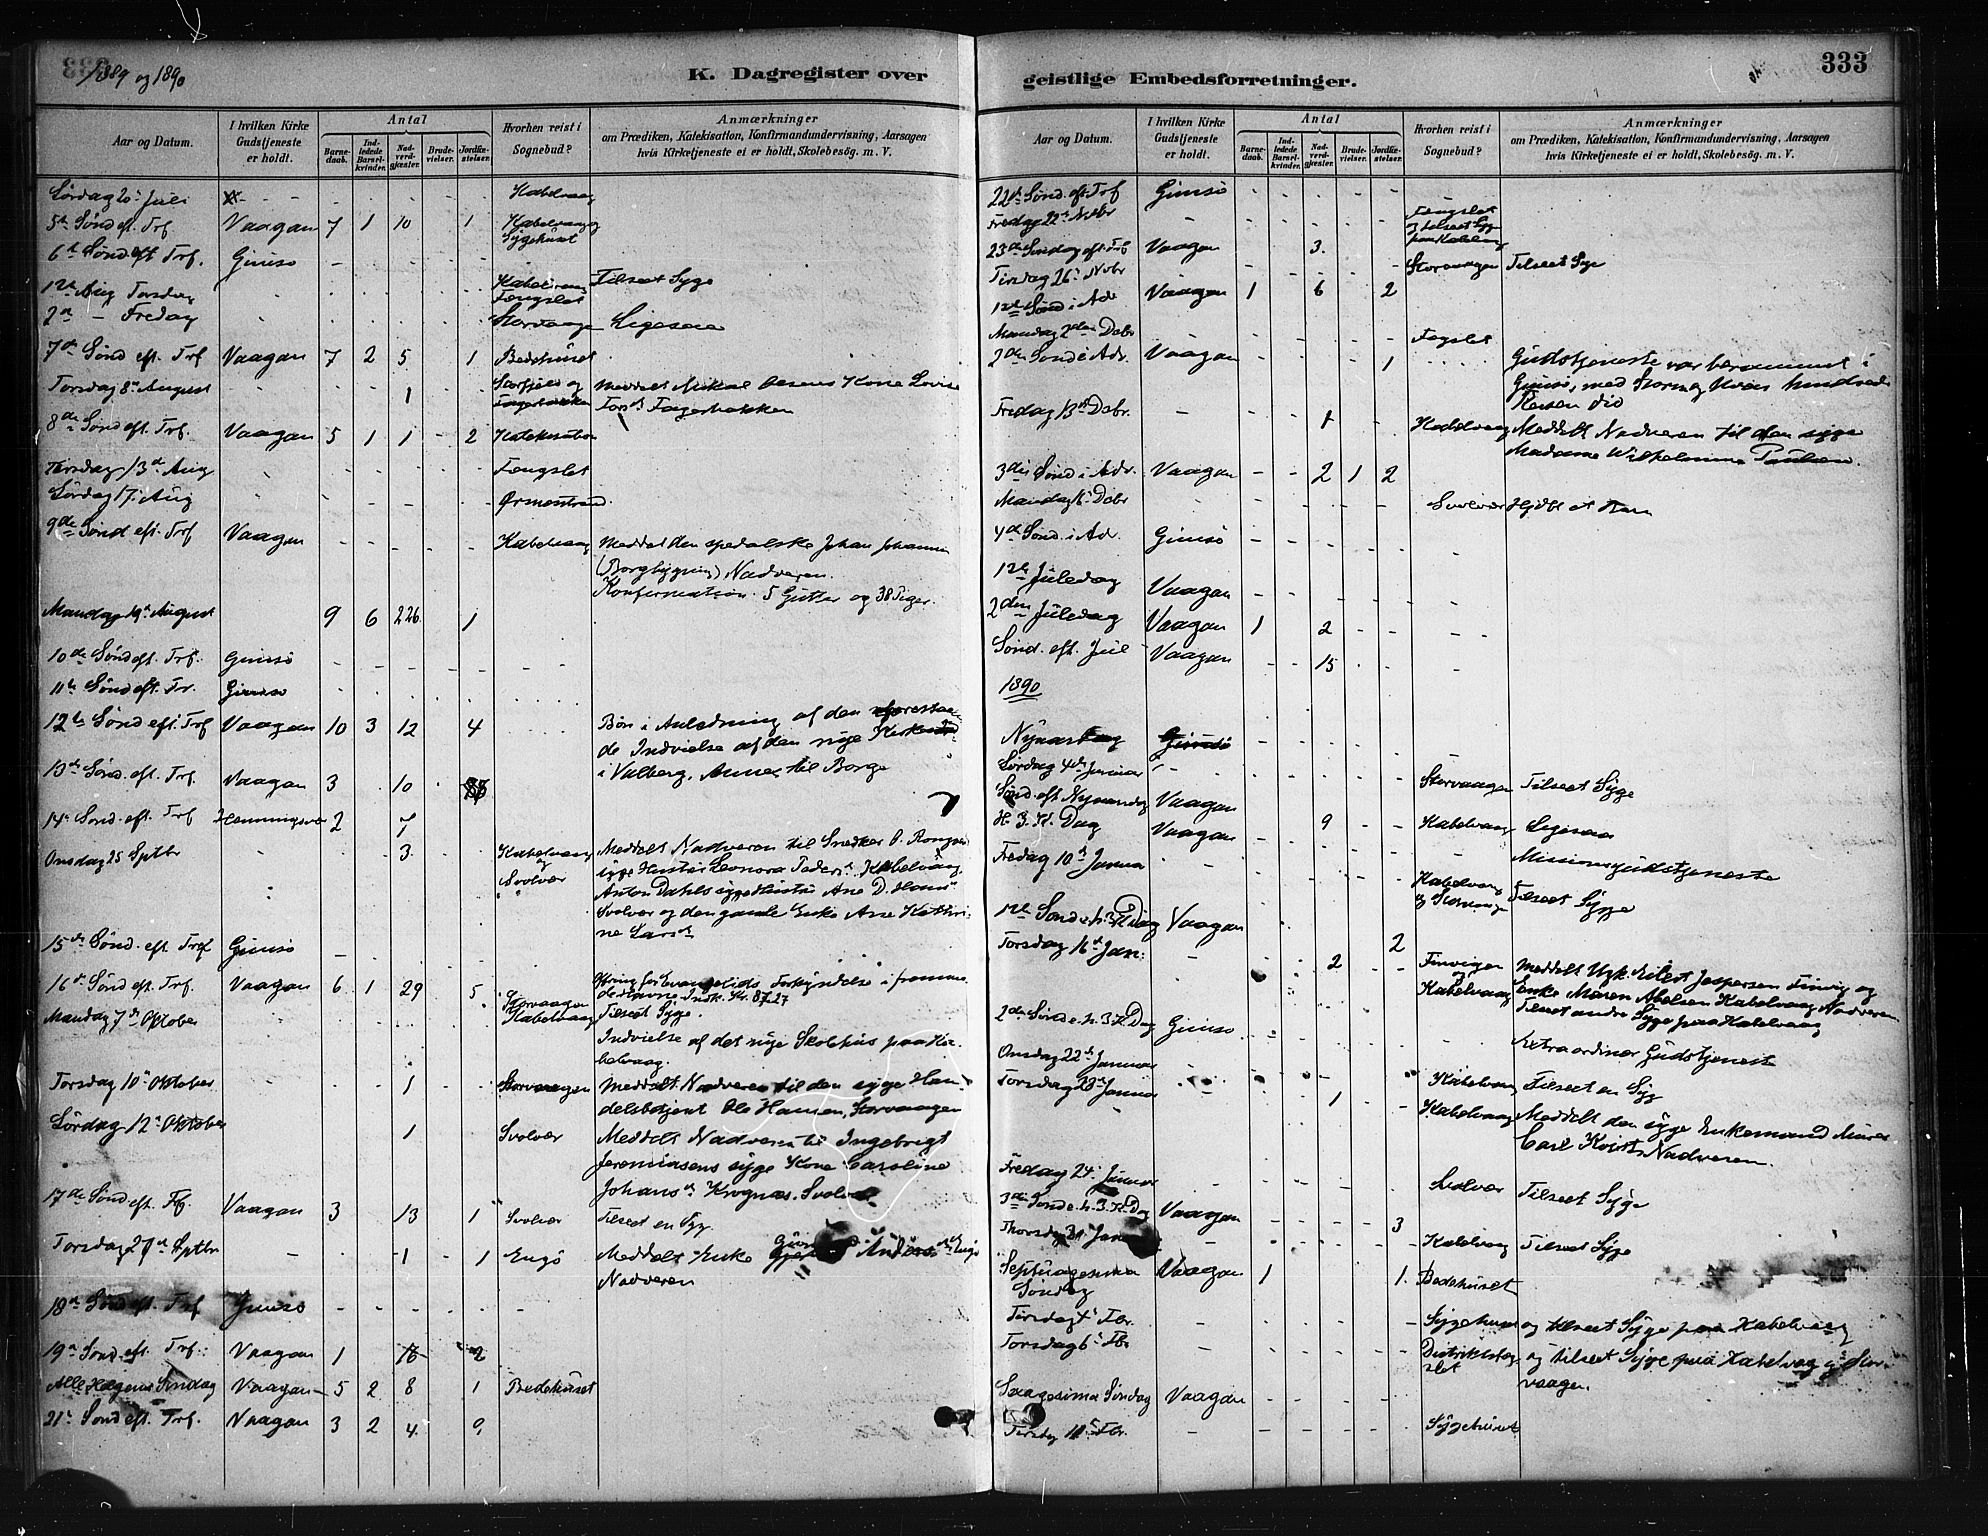 1889 og 1890
K. Dagregister over
geistlige Embedsforretninger.
333
Aar og Datum.
I hvilken Kirke Gudstjeneste er holdt.
Antal
Barne-daab.
Ind-ledede Barsel-kvinder.
Nad-verd-gjæster.
Brude-vielser.
Jordfæ-stelser.
Hvorhen reist i Sognebud?
Anmærkninger
om Prædiken, Katekisation, Konfirmandundervisning, Aarsagen
hvis Kirketjeneste ei er holdt, Skolebesög. m. V.
Lördag 20 Juli - - - - - Kabelvaag
5te Sönd eft. Trf Vaagan 7 1 10 1 Kabelvaag
Sygehuset
6te Sönd eft Trf. Gimsö -
1ste Aug Torsdag Kabelvaag Tilseet Syge
Fængslet
2den - Fredag Storvaagen Ligesaa
7de Sönd eft. Trf Vaagan 7 2 5 1 Bedehuset
Torsdag 8de August 1 og Meddelt Mikal Olsens Kone Lovise
8de Sönd eft. Trf. Vaagan 5 1 1 - 2 Katekisation
Tirsdag 13de Aug Fængslet
Lördag 17 Aug
9de Sönd eft. Trf Vaagan - - - - - Kabelvaag Meddelt den spedalske Johan
Nadveren.
Konfirmation 5 Gutter og 38 Piger.
Mandag 19de August 9 6 226 1
10de Sönd eft. Trf. Gimsö - - - - -
11te Sönd eft. Tr. Gimsö
12te Sönd eft Trf Vaagan 10 3 12 4 Bön i Anledning af den
de Indvielse af den nye
i Valberg, Annex til Borge
13de Sönd. eft. Trf. Vaagan 3 10
14de Sönd. eft. Trf Henningsvær 2 7
Onsdag 25 Sptbr 3. Kabelvaag Meddelt Nadveren til Snedker
og syge Hustru Leonora Peders. Kabelvaag,
Svolvær Anton Dahls syge Hustru Ane D. Hans
Svolvær og den gamle Enke Ane Kathri-
ne Larsd.
15de Sönd. eft Trf Gimsö -
16de Sönd eft. Trf. Vaagan 6 1 29 5 Ofring for Evangeliets Forkyndelse i fremme-
de Havne Indk. Kr. 87.27
Mandag 7de Oktober Storvaagen
Kabelvaag Tilseet Syge.
Indvielse af det nye Skolehus paa Ka-
belvaag.
Torsdag 10de Oktober 1 Storvaagen Meddelt Nadveren til den syge Han-
delsbetjent Ole Hansen, Storvaagen
Lördag 12te Oktober 1 Svolvær Meddelt Nadveren til Ingebrigt
Jeremiasens syge Kone Caroline
Johans. Svolvær
17de Sönd. eft. Trf. Vaagan 3 13 1 Svolvær Tilseet en Syg.
Torsdag Sptbr - 1 1 Engö Meddelt Enke
Nadveren
18de Sönd eft. Trf. Gimsö - - - - - -
19de Sönd. eft. Trf. Vaagan 1 2
Alle Helgens Söndag Vaagan 5 2 8 1 Bedehuset
21de Sönd eft. Trf. Vaagan 3 2 4 9
Aar og Datum.
I hvilken Kirke Gudstjeneste er holdt.
Antal
Barne-daab.
Ind-ledede Barsel-kvinder.
Nad-verd-gjæster.
Brude-vielser.
Jordfæ-stelser.
Hvorhen reist i Sognebud?
Anmærkninger
om Prædiken, Katekisation, Konfirmandundervisning, Aarsagen
hvis Kirketjeneste ei er holdt, Skolebesög. m. V.
22de Sönd. eft. Trf Gimsö - - - - -
Fredag 22de Novbr - Fængslet
og tilseet Syge
paa Kabelvaag
23de Söndag eft. Trf Vaagan 3.
Tirsdag 26de Novbr Storvaagen Tilseet Syge
1ste Sönd i Adv Vaagan 1 6 2
Mandag 2den Decbr -
2den Sönd i Adv. Vaagan 1 Gudstjeneste var berammet i
Gimsö, men Storm og hindrede
Reisen did
Fredag 13de Dcbr. - 1 - Kabelvaag Meddelt Nadveren til den syge
Madame Wilhelmine Paulsen.
3die Sönd i Adv. Vaagan - - 2 1 2
Mandag 16 Dcbr Svolvær
4de Sönd. i Adv. Gimsö - - - - -
1ste Juledag Vaagan - - - - - -
2den Juledag Vaagan 1 2 - - -
Sönd. eft. Jul Vaagan - - 15 - -
1890
Nyaarsdag Gimsö - - - - -
Lördag 4de Januar - Storvaagen Tilseet Syge
Sönd. eft Nyaarsdag Vaagan
H. 3. K. Dag Vaagan - 9 - - Kabelvaag Ligesaa
Missionsgudstjeneste
Fredag 10de Januar - Kabelvaag
og Storvaagen Tilseet Syge
1ste Sönd e. h. 3 K Dag Vaagan 2
Torsdag 16de Jan. - 2 - - Finvigen Meddelt Ugk. Eilert Jespersen Finvig og
og
Kabelvaag Enke Maren Abelsen Kabelvaag Nadveren
Tilseet andre Syge paa Kabelvaag
2den Sönd e. h. 3 K Dag Gimsö
Onsdag 22de Januar - Extraordinær Gudstjeneste
Kabelvaag Tilseet en Syg
Torsdag 23de Januar 1 Kabelvaag Meddelt den syge Enkemand Murer
Carl Nadveren.
Fredag 24 Januar Svolvær Tilseet Syge
3die Sönd e. h. 3. K. Dag Vaagan - - - - 3
Thorsdag Kabelvaag Tilseet Syge
Septuagesima Vaagan 1 1. Bedehuset
Söndag
Tirsdag 4de Fbr. - Sygehuset og tilseet Syge paa Kabelvaag
Torsdag 6te Fbr - Distriktsfæng- og tilseet Syge paa Kabelvaag og Stor-
slet vaagen.
Sexagesima Söndag Vaagan
Tirsdag 11te Fbr. - - - - - - Sygehuset